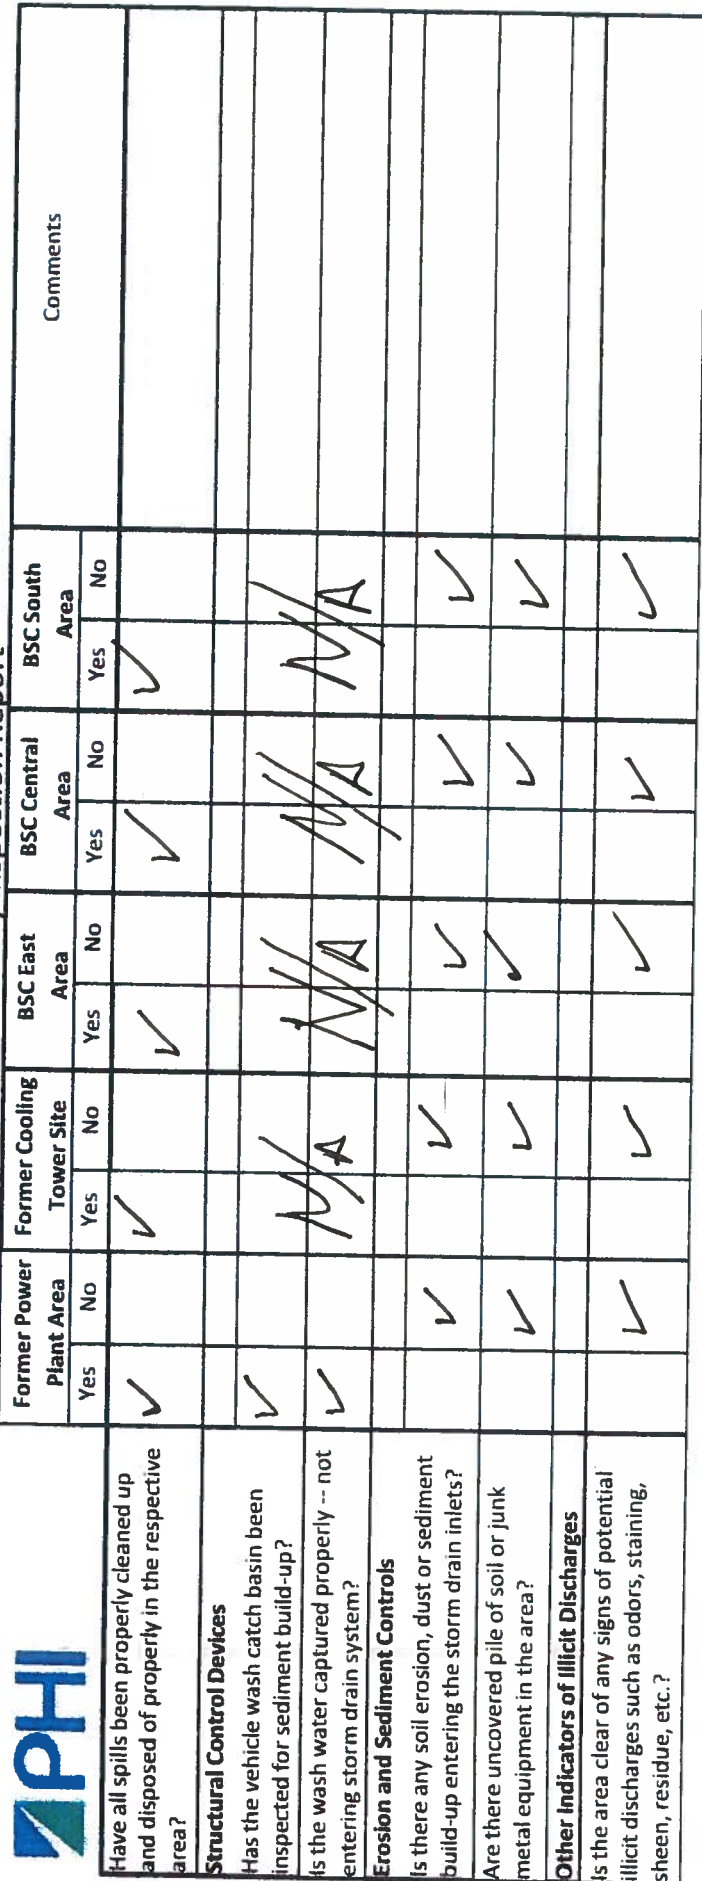 PHI
Inspection Report
Former Power Plant Area
Former Cooling Tower Site
BSC East Area
BSC Central Area
BSC South Area
Comments
Yes No Yes No Yes No Yes No Yes No
Have all spills been properly cleaned up
and disposed of properly in the respective
area?
✓ ✓ ✓ ✓ ✓
Structural Control Devices
Has the vehicle wash catch basin been
inspected for sediment build-up?
✓ N/A N/A N/A N/A
Is the wash water captured properly -- not
entering storm drain system?
✓
Erosion and Sediment Controls
Is there any soil erosion, dust or sediment
build-up entering the storm drain inlets?
✓ ✓ ✓ ✓ ✓
Are there uncovered pile of soil or junk
metal equipment in the area?
✓ ✓ ✓ ✓ ✓
Other Indicators of Illicit Discharges
Is the area clear of any signs of potential
illicit discharges such as odors, staining,
sheen, residue, etc.?
✓ ✓ ✓ ✓ ✓